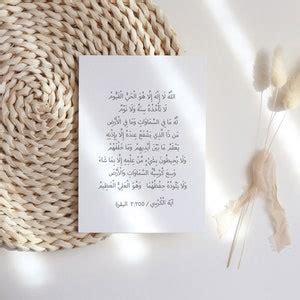 اللَّهُ لَا إِلَهَ إِلَّا هُوَ الْحَيُّ الْقَيُّومُ
لَا تَأْخُذُهُ سِنَةٌ وَلَا نَوْمٌ
لَّهُ مَا فِي السَّمَاوَاتِ وَمَا فِي الْأَرْضِ
مَن ذَا الَّذِي يَشْفَعُ عِندَهُ إِلَّا بِإِذْنِهِ
يَعْلَمُ مَا بَيْنَ أَيْدِيهِمْ وَمَا خَلْفَهُمْ
وَلَا يُحِيطُونَ بِشَيْءٍ مِّنْ عِلْمِهِ إِلَّا بِمَا شَاءَ
وَسِعَ كُرْسِيُّهُ السَّمَاوَاتِ وَالْأَرْضَ
وَلَا يَئُودُهُ حِفْظُهُمَا وَهُوَ الْعَلِيُّ الْعَظِيمُ
آيَةُ الْكُرْسِيِّ / ٢:٢٥٥ البقرة